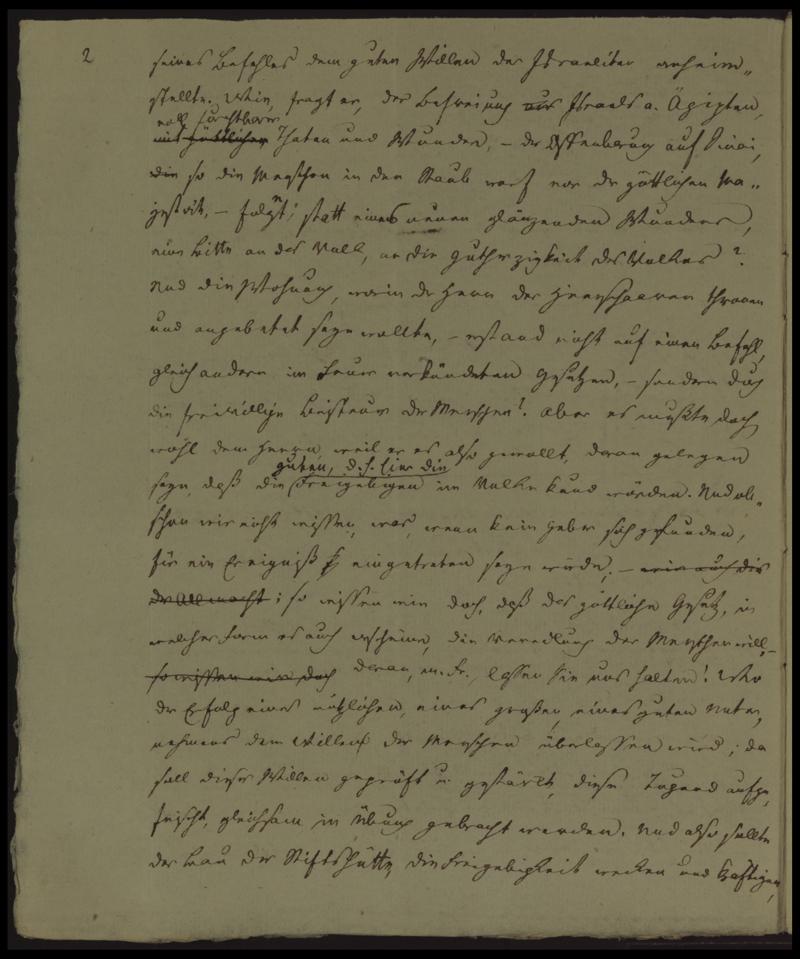 2
seines Befehles dem guten Willen der Israeliten anheim„
stellte. Wie, fragt er, der Befreiung aus Israels a. Ägipten,
voll furchtbarer
mit göttlichen Thaten und Wunder, – der Offenbarung auf Sinai,
die so die Menschen in den Staub warf vor der göttlichen Ma„
jestät, – folgt, statt eines neuen glänzenden Wunders,
eine Bitte an das Volk, an die Gutherzigkeit des Volkes?
Und die Wohnung, worin der Herr der Heerschaaren thronen
und angebetet seyn wollte, – erstand nicht auf einen Befehl,
gleich andern im Feuer verkündeten Gesetzen, – sondern durch
die freiwillige Beisteuer der Menschen! Aber es mußte doch
wohl dem Herrn, weil er es also gewollt, daran gelegen
guten, d. h. hier die
seyn, daß die Freigebigen im Volke kund würden. Und ob„
schon wir nicht wissen, was, wenn kein Geber sich gefunden,
für ein Ereigniß eingetreten seyn würde, – wie auch die
der Allmacht; so wissen wir doch, daß das göttliche Gesetz, in
welcher Form es auch erscheine, die Veredlung der Menschen will, –
so wissen wir doch daran, m. Fr., lassen Sie uns halten! Wo
der Erfolg eines nützlichen, eines großen, eines guten Unter„
nehmens dem Willen der Menschen überlassen wird; da
soll dieser Willen geprüft u. gestärkt, diese Tugend aufge„
frischt, gleichsam in Übung gebracht werden. Und also sollte
der Bau der Stiftshütte die Freigebigkeit wecken und kräftigen,